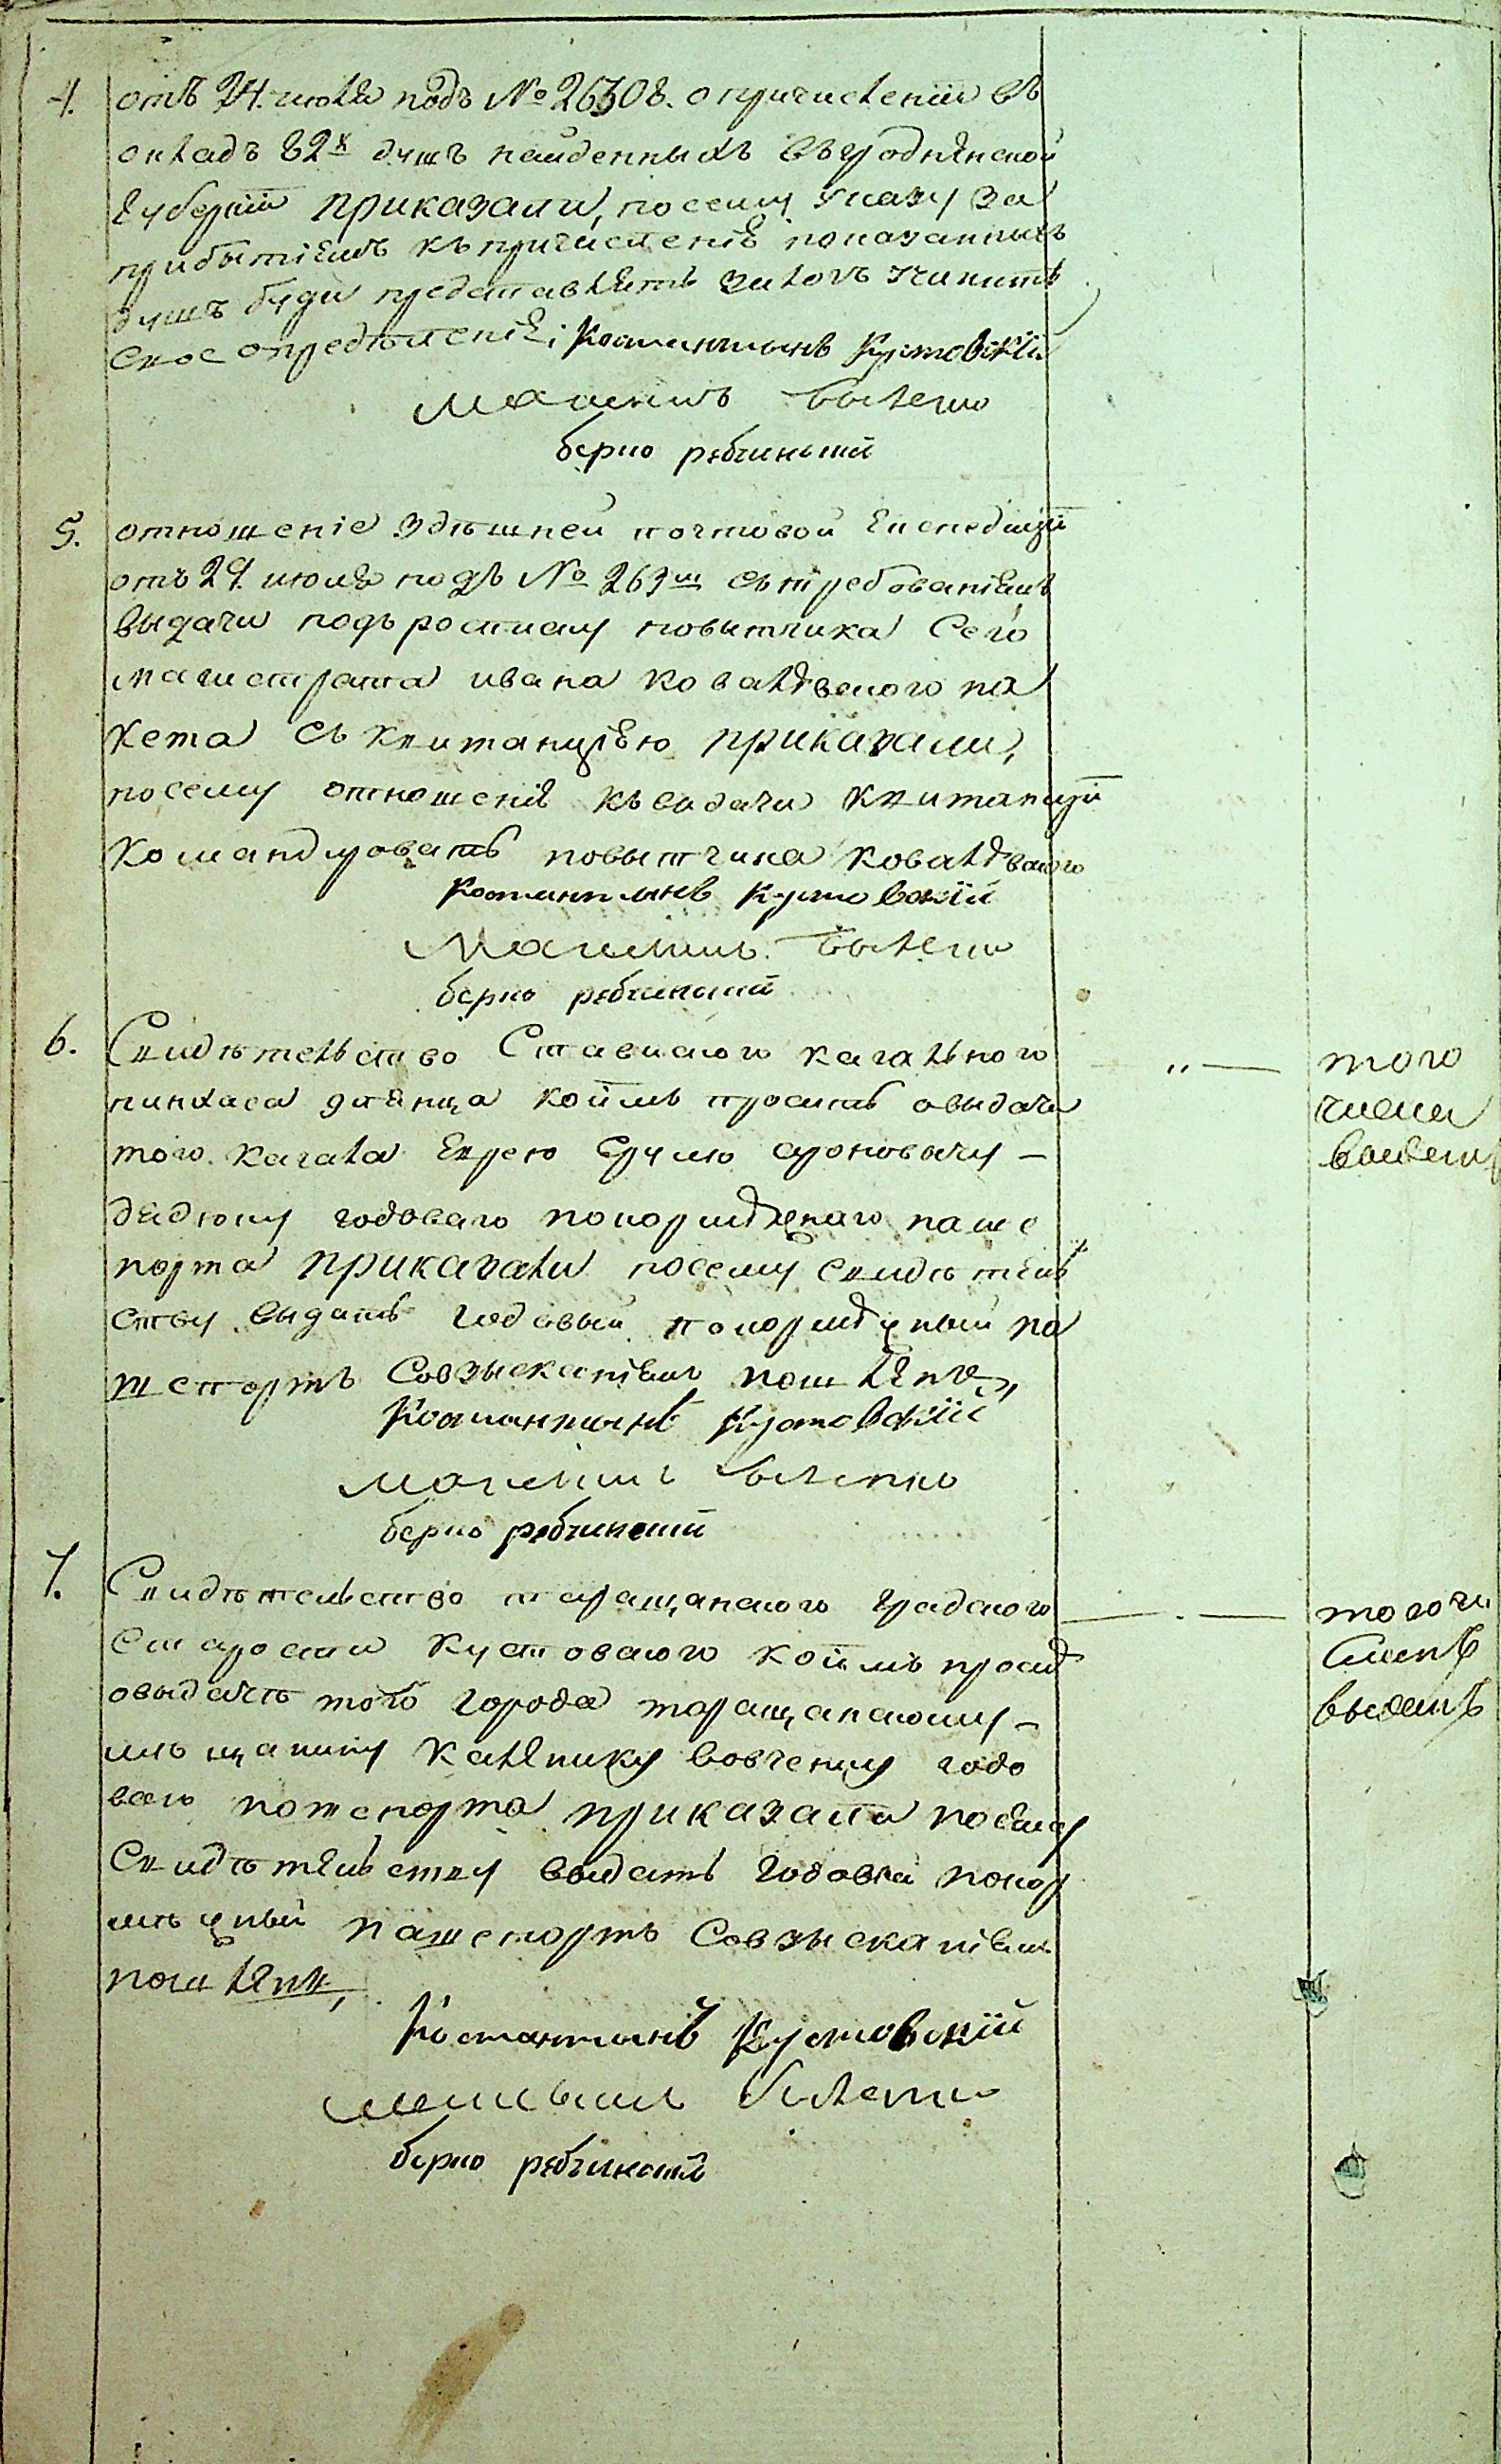 4. отъ 24. июля подъ № 26308. о причисленіи въ
окладъ 82х душъ найденныхъ въ гродненской
губерніи приказали, посему указу за
прибытіемъ къ причисленіе показанныхъ
душъ буди представлять учинить
свое определеніе; Костантынъ Кустовскій
берко рябчинский
5. отношеніе здѣшней почтовой Експедиціи
отъ 29. июля подъ № 263м съ требованіемъ
выдачи подъ росписку повытчика Сего
магистрата ивана ковалевского па
кета съ квитанціею приказали,
посему отношеніе къ видачи квитанціи
командировать повытчика ковалевского
Костантынъ Кустовскій
берко рябчинский
6. Свидѣтельство Ставиского кагального
пинхаса коимъ просить о выдачи
того кагала Еврею Сруллю ароновичу -
годоваго покормежнаго паше
порта приказали посему свидѣтель
ству выдать годовый покормежный па
шепортъ Совзысканіемъ пошлень,
Костантынъ Кустовскій
берко рябчинский
7. Свидѣтельство таращанского градского
старосты кустовского коимъ просит
овыдачѣ того города таращанскому -
мѣщанину калнику вовченку годо
ваго пашепорта приказали посему
Свидѣтельству выдать годовый покор
мѣжный пашепортъ Совзысканіемъ
пошленъ,
Костантынъ Кустовскій
берко рябчинскій
того
числа
выдан
того чи
сла
выданъ